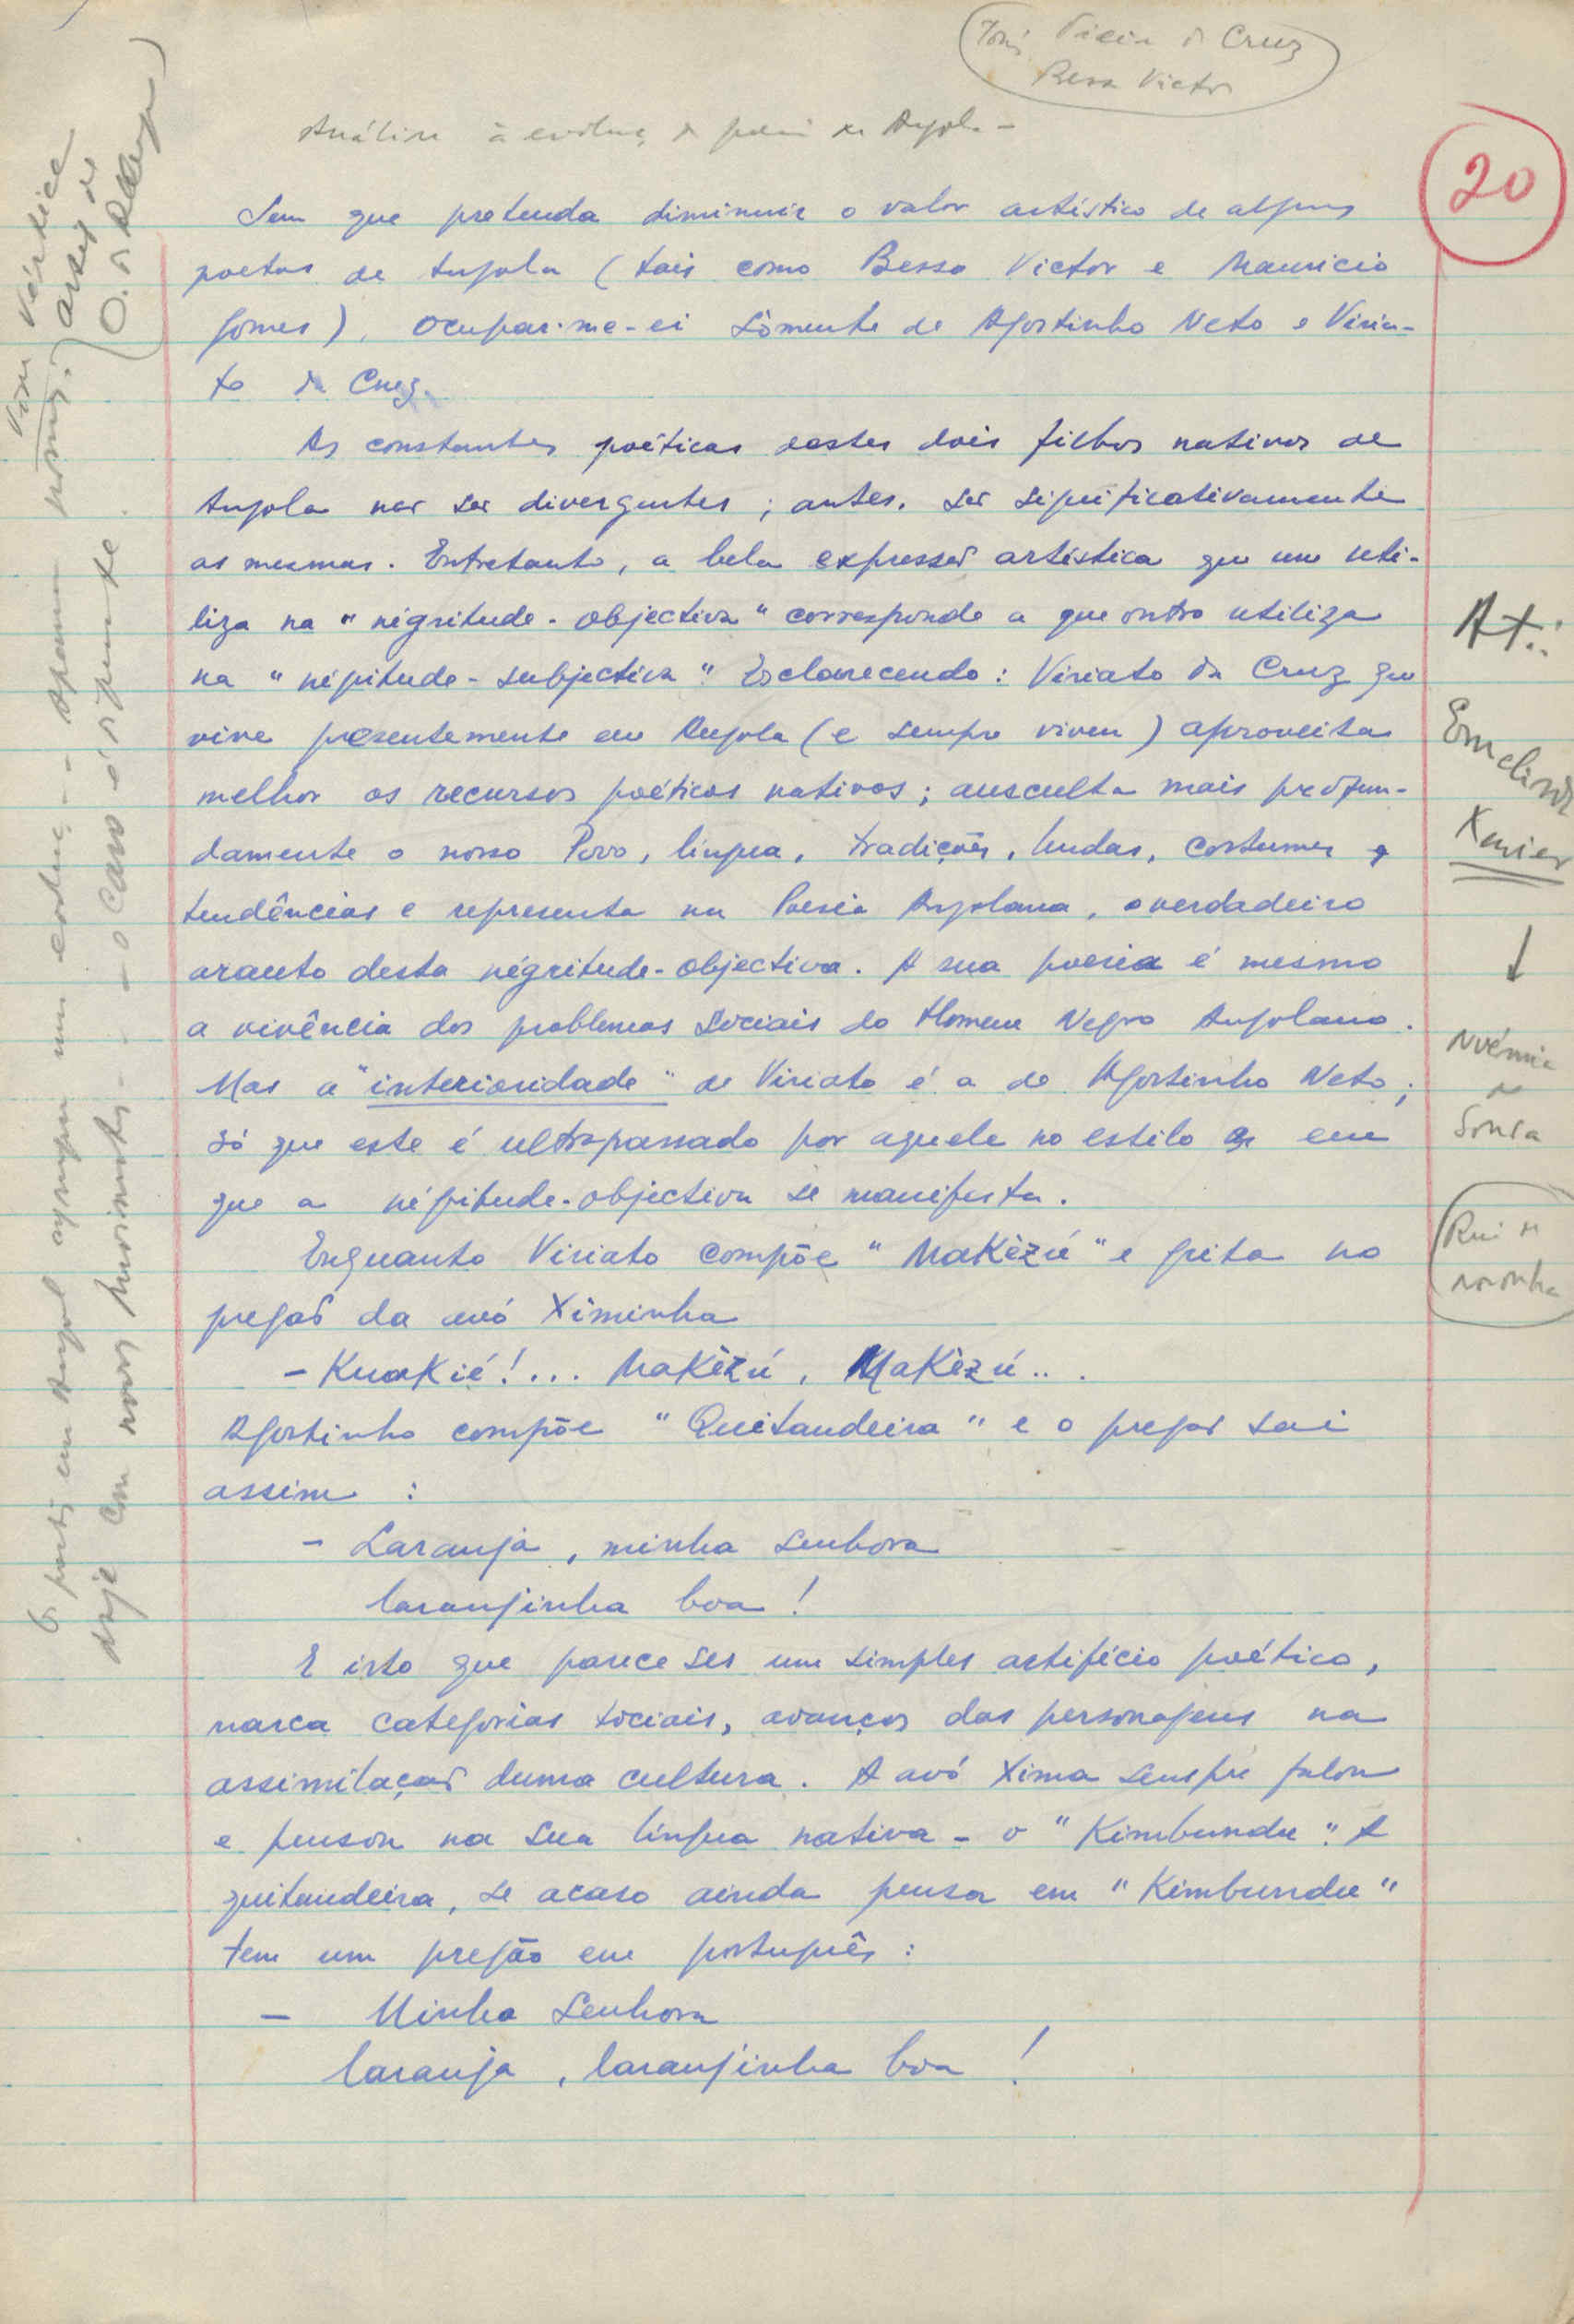 Cruz
Bessa Victor
Análise à evoluç. da poesia de Angola -
20
Sem que pretenda diminuir o valor artístico de alguns
poetas de Angola (tais como Bessa Victor e Mauricio
Gomes), ocupar-me-ei sòmente de Agostinho Neto e Viria-
to da Cruz.
As constantes poéticas destes dois filhos nativos de
Angola não são divergentes; antes, são significativamente
as mesmas. Entretanto, a bela expressão artística que um uti-
liza na "négritude-objectiva" corresponde a que outro utiliza
na "négritude-subjectiva". Esclarecendo: Viriato da Cruz que
vive presentemente em Angola (e sempre viveu) aproveita
melhor os recursos poéticos nativos; ausculta mais profun-
damente o nosso Povo, língua, tradições, lendas, costumes e
tendências e representa na Poesia Angolana, o verdadeiro
arauto desta négritude-objectiva. A sua poesia é mesmo
a vivência dos problemas sociais do Homem Negro Angolano.
Mas a "interioridade" de Viriato é a de Agostinho Neto;
só que este é ultrapassado por aquele no estilo em
que a négritude-objectiva se manifesta.
Enquanto Viriato compõe "Makèzú" e grita no
pregão da avó Ximinha
- Kuakié!... Makèzú, Makèzú...
Agostinho compõe "Quitandeira" e o pregão sai
assim :
- Laranja, minha senhora
laranjinha boa!
E isto que parece ser um simples artifício poético,
marca categorias sociais, avanços das personagens na
assimilação duma cultura. A avó Xima sempre falou
e pensou na sua língua nativa - o "Kimbundu". A
quitandeira, se acaso ainda pensa em "Kimbundu"
tem um pregão em português:
- Minha Senhora
laranja, laranjinha boa!
At.:
Ermelinda
Xavier
↓
Noémia
de
Sousa
Rui de
Noronha
Vértice
o caso é diferente.
hoje com novos movimentos